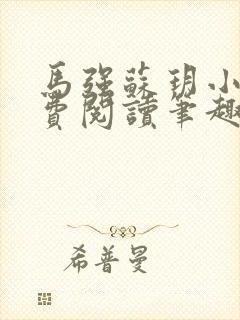 馬強蘇玥小
費閱讀筆趣
希普曼